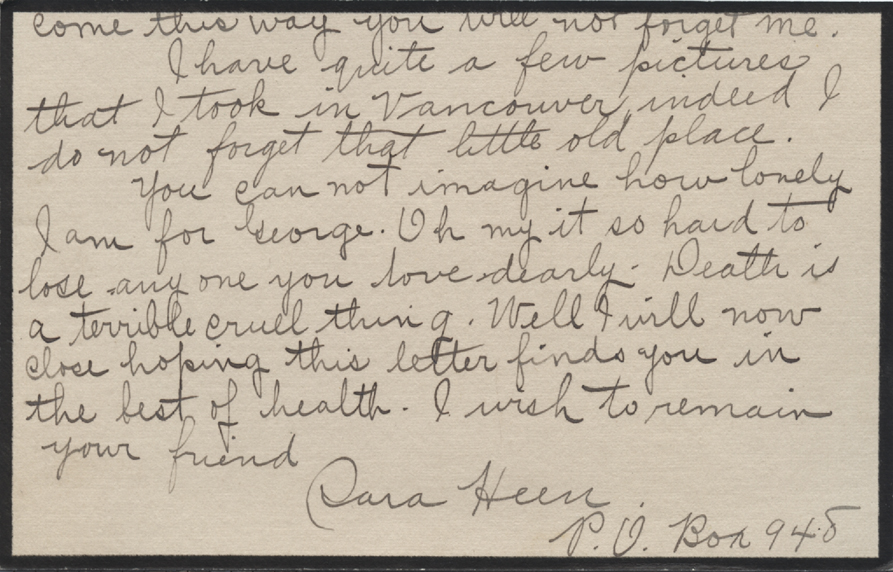 come this way you will not forget me.
I have quite a few pictures
that I took in Vancouver, indeed I
do not forget that little old place.
You can not imagine how lonely
I am for George. Oh my it so hard to
lose any one you love dearly. Death is
a terrible cruel thing. Well I will now
close hoping this letter finds you in
the best of health. I wish to remain
your friend
Sara Heen.
P.O. Box 948